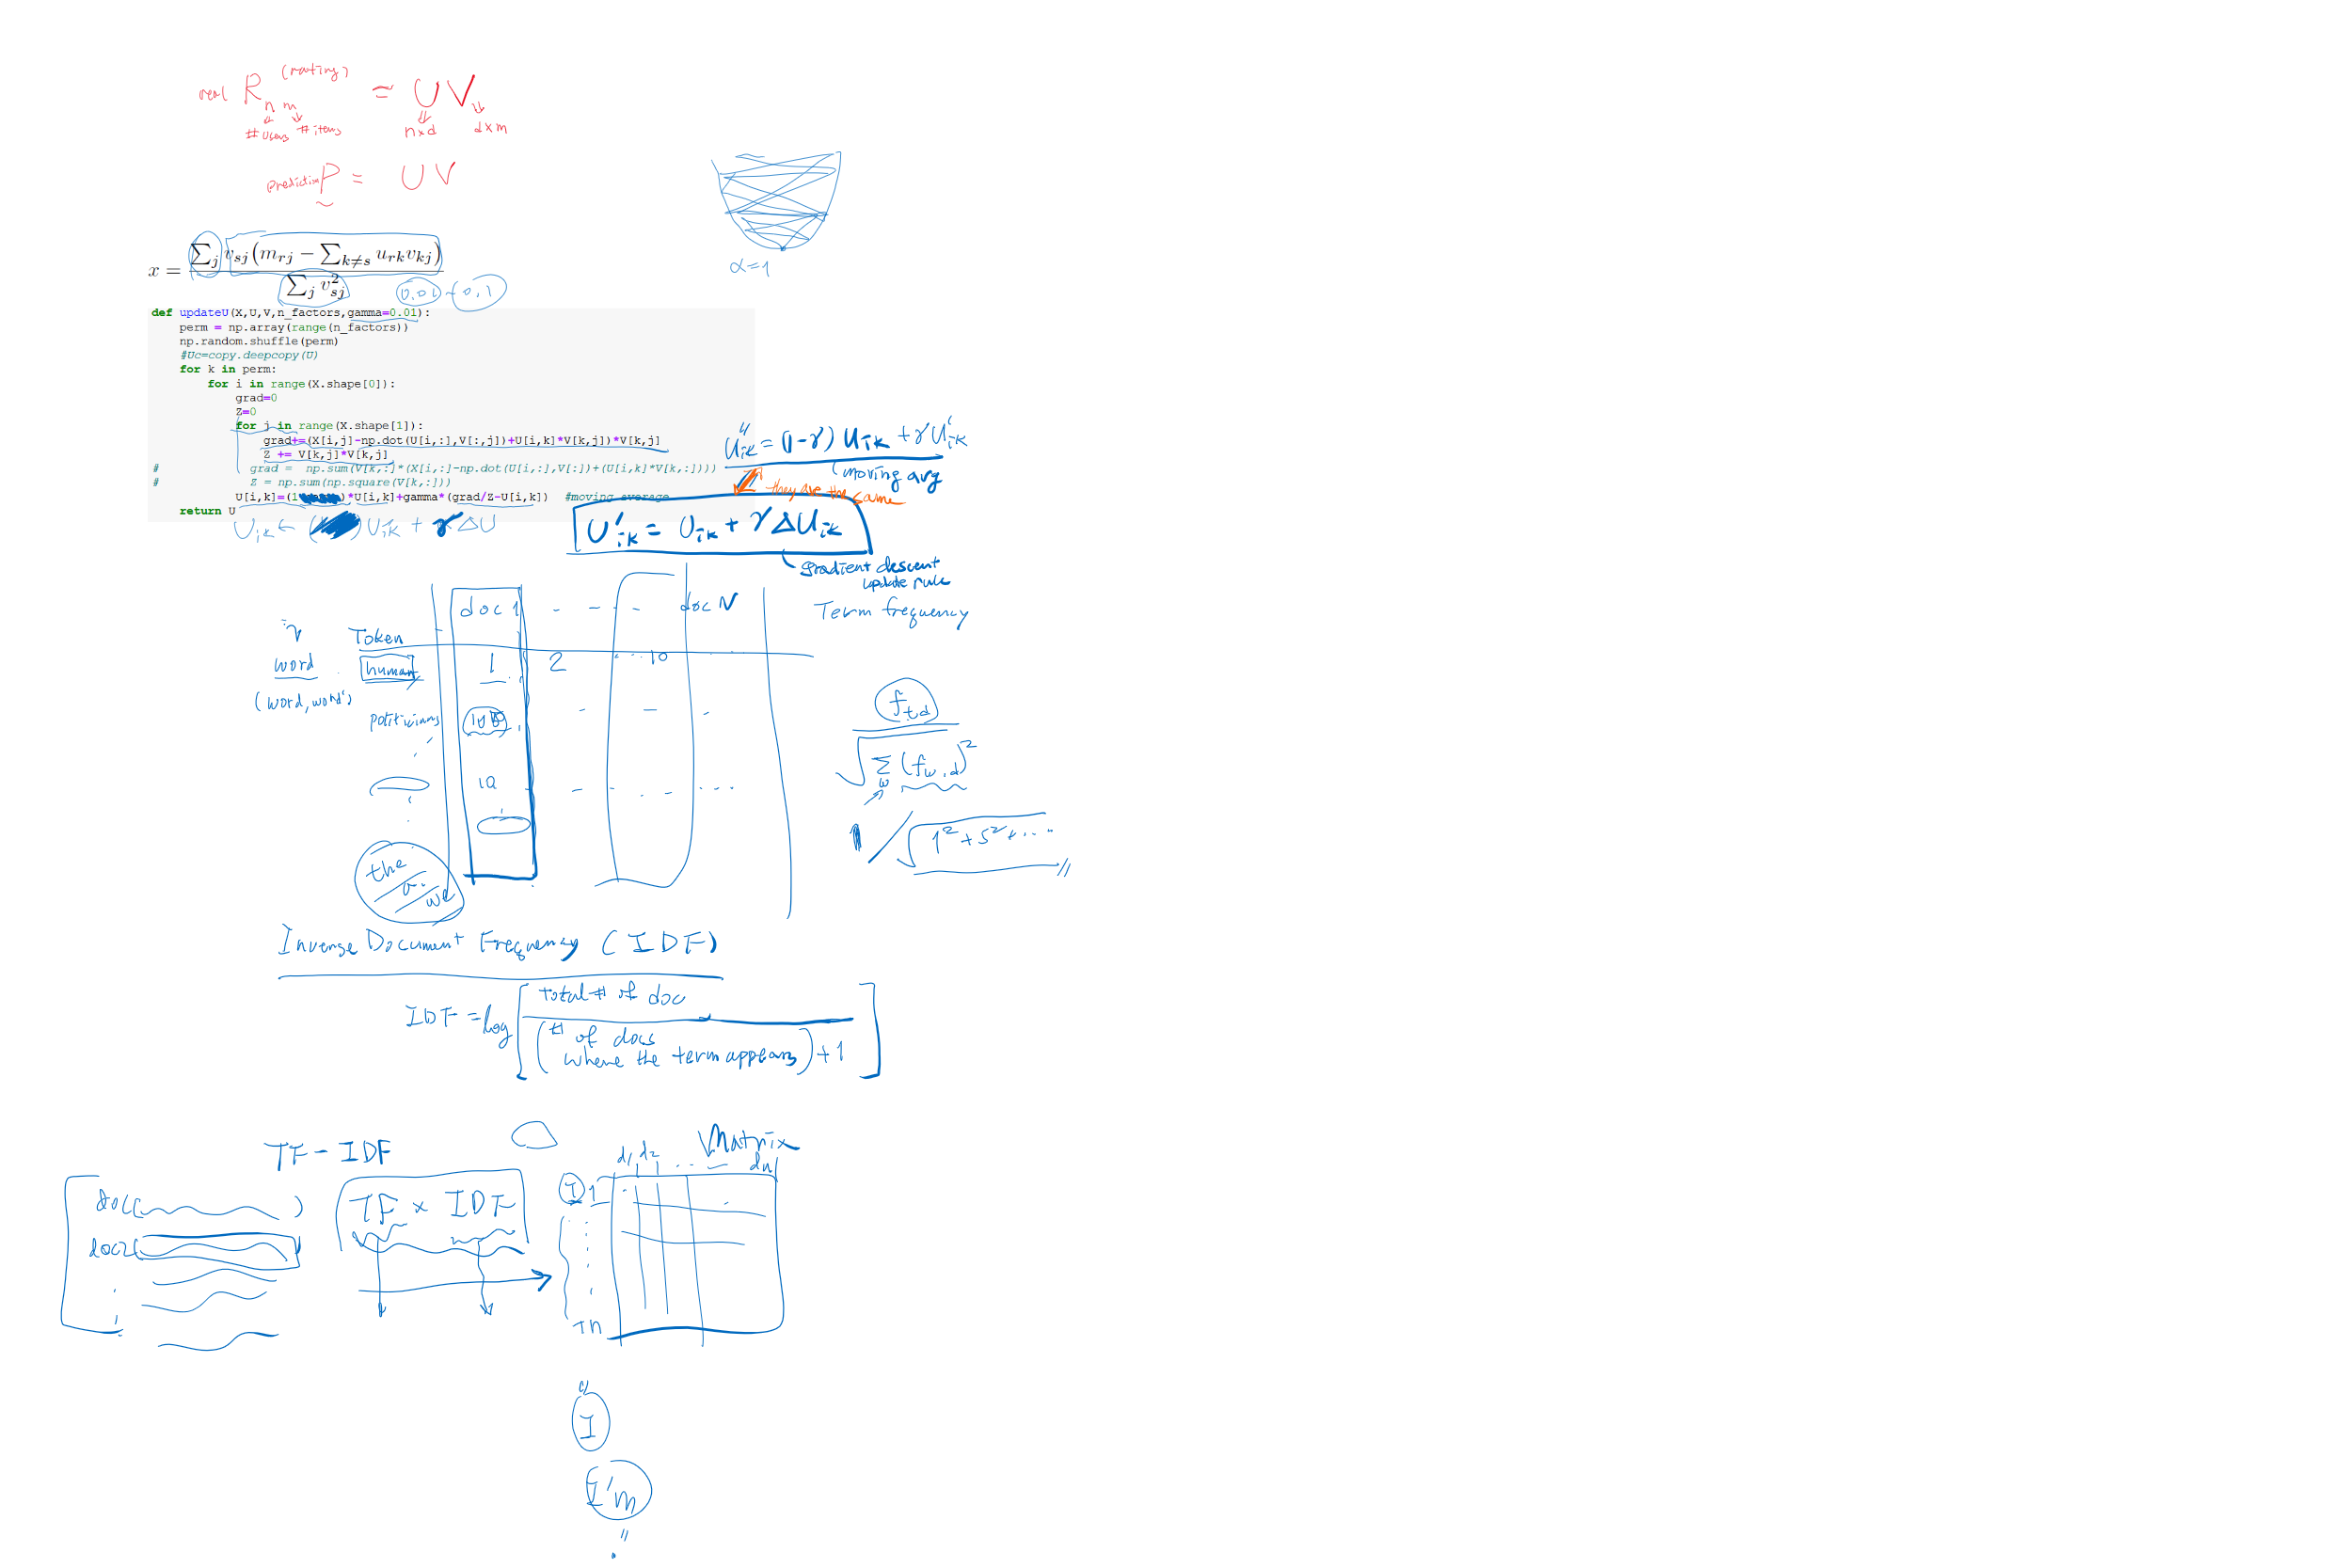 real R n m (rating) = U V
# users # items n×d d×m
prediction P = U V
α=1
x = ∑j vsj(mrj − ∑k≠s urkvkj) / ∑j v²sj
0.01 ~ 0.1
def updateU(X,U,V,n_factors,gamma=0.01):
    perm = np.array(range(n_factors))
    np.random.shuffle(perm)
    #Uc=copy.deepcopy(U)
    for k in perm:
        for i in range(X.shape[0]):
            grad=0
            Z=0
            for j in range(X.shape[1]):
                grad+=(X[i,j]-np.dot(U[i,:],V[:,j])+U[i,k]*V[k,j])*V[k,j]
                Z += V[k,j]*V[k,j]
#             grad =  np.sum(V[k,:]*(X[i,:]-np.dot(U[i,:],V[:])+(U[i,k]*V[k,:])))
#             Z = np.sum(np.square(V[k,:]))
            U[i,k]=(1 )*U[i,k]+gamma*(grad/Z-U[i,k])  #moving average
    return U
U''ik = (1-γ) Uik + γ U'ik
moving avg
they are the same
Uik ← ( ) Uik + γ ΔU
U'ik = Uik + γ ΔUik
gradient descent
update rule
Term frequency
doc 1 - - - - doc N
Token
word human 1 2 ... 10 ...
(word, word')
politicians 100 - — -
10 - - - - ...
the
a
we
ftd
√∑w (fw,d)²
1 / √1² + 5² + ....
Inverse Document Frequency (IDF)
IDF = log [ total # of doc
(# of docs
where the term appears) + 1 ]
TF - IDF
Matrix
d1 d2 ... dn
doc1( )
doc2(
TF × IDF
I 1
Tn
"
I
I'm
"